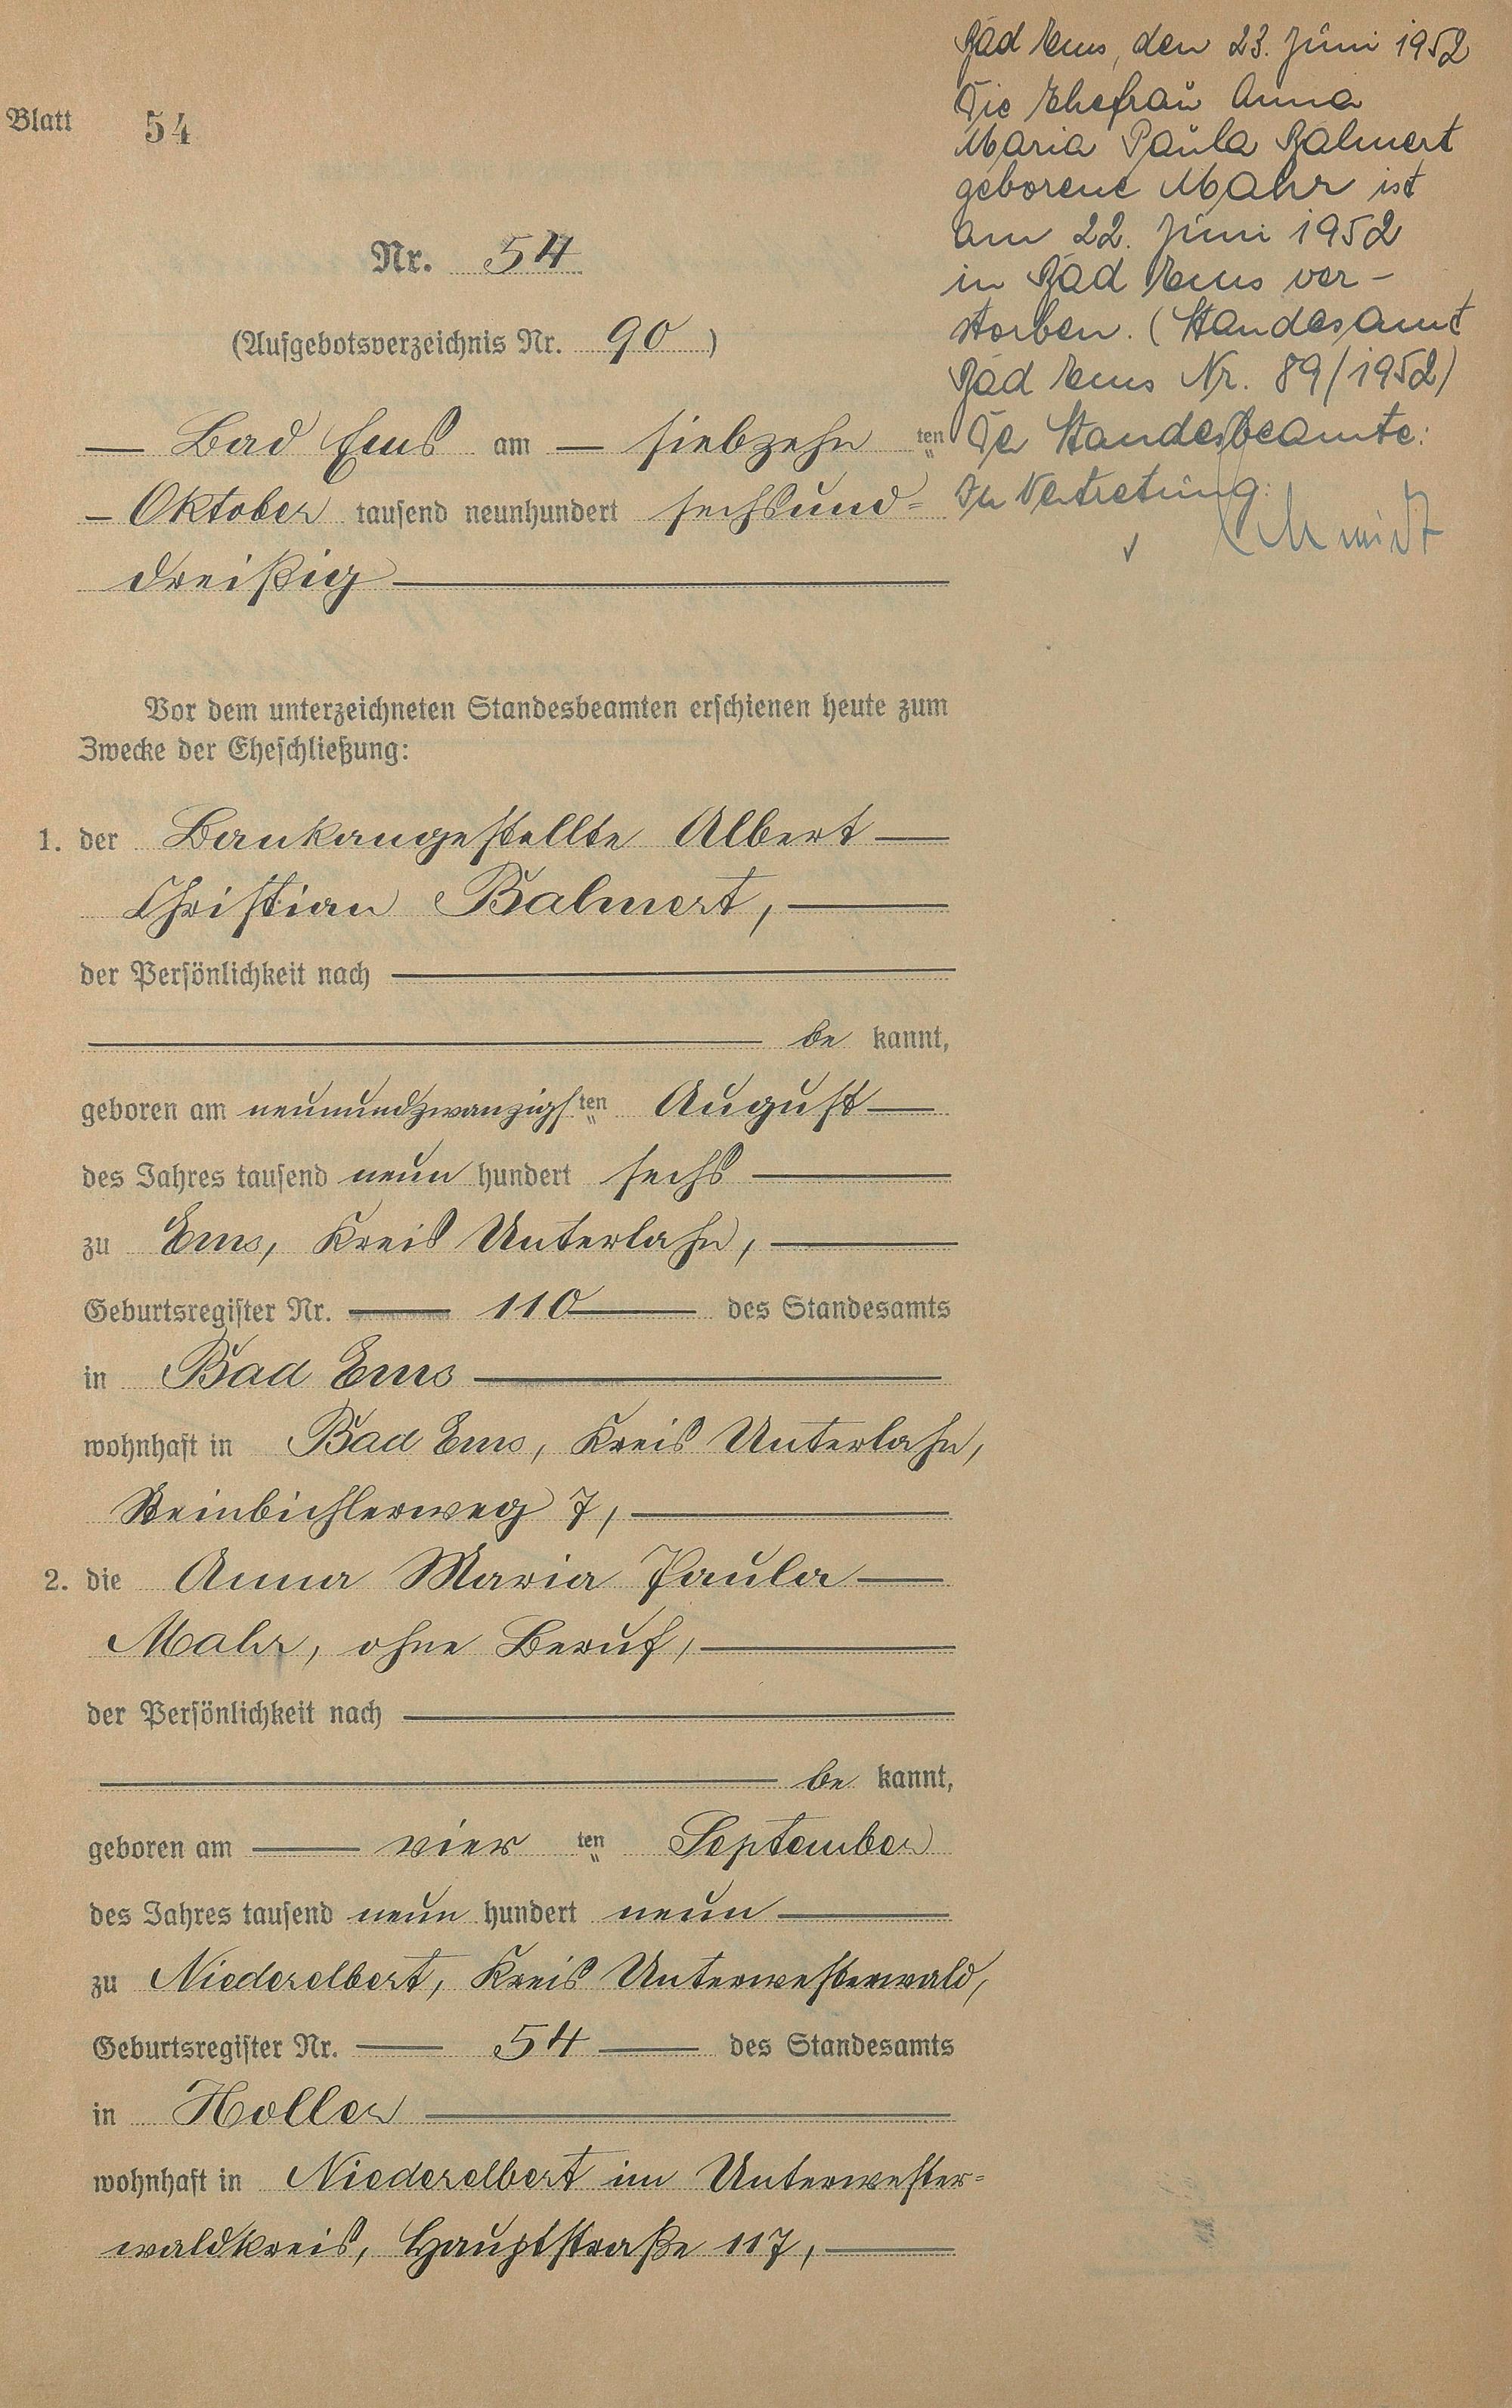 Blatt 54
Nr. 54
(Aufgebotsverzeichnis Nr. 90)
— Bad Ems am — siebzehn ten
— Oktober tausend neunhundert sechsund=
dreißig —
Vor dem unterzeichneten Standesbeamten erschienen heute zum
Zwecke der Eheschließung:
1. der Bankangestellte Albert —
Christian Balmert, —
der Persönlichkeit nach —
— be kannt,
geboren am neunundzwanzigsten August —
des Jahres tausend neun hundert sechs —
zu Ems, Kreis Unterlahn, —
Geburtsregister Nr. — 110 — des Standesamts
in Bad Ems —
wohnhaft in Bad Ems, Kreis Unterlahn,
Steinbichlerweg 7, —
2. die Anna Maria Paula —
Mahr, ohne Beruf, —
der Persönlichkeit nach —
— be kannt,
geboren am — vier ten September
des Jahres tausend neun hundert neun —
zu Niederelbert, Kreis Unterwesterwald,
Geburtsregister Nr. — 54 — des Standesamts
in Holler —
wohnhaft in Niederelbert im Unterwester=
waldkreis, Hauptstraße 117, —
Bad Ems, den 23. Juni 1952
Die Ehefrau Anna
Maria Paula Balmert
geborene Mahr ist
am 22. Juni 1952
in Bad Ems ver-
storben. (Standesamt
Bad Ems Nr. 89/1952)
Der Standesbeamte:
In Vertretung:
Schmidt